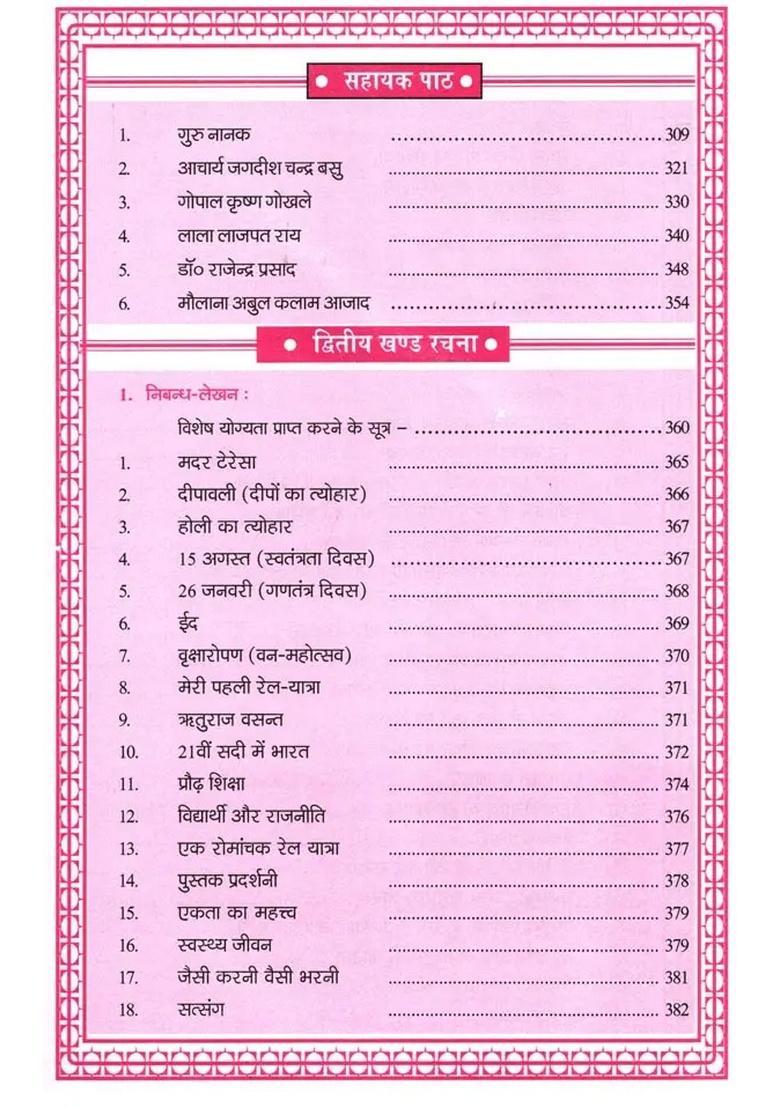 • सहायक पाठ •
1. गुरु नानक ........................................ 309
2. आचार्य जगदीश चन्द्र बसु ........................................ 321
3. गोपाल कृष्ण गोखले ........................................ 330
4. लाला लाजपत राय ........................................ 340
5. डॉ० राजेन्द्र प्रसाद ........................................ 348
6. मौलाना अबुल कलाम आजाद ........................................ 354
• द्वितीय खण्ड रचना •
1. निबन्ध-लेखन :
विशेष योग्यता प्राप्त करने के सूत्र – ........................................ 360
1. मदर टेरेसा ........................................ 365
2. दीपावली (दीपों का त्योहार) ........................................ 366
3. होली का त्योहार ........................................ 367
4. 15 अगस्त (स्वतंत्रता दिवस) ........................................ 367
5. 26 जनवरी (गणतंत्र दिवस) ........................................ 368
6. ईद ........................................ 369
7. वृक्षारोपण (वन-महोत्सव) ........................................ 370
8. मेरी पहली रेल-यात्रा ........................................ 371
9. ऋतुराज वसन्त ........................................ 371
10. 21वीं सदी में भारत ........................................ 372
11. प्रौढ़ शिक्षा ........................................ 374
12. विद्यार्थी और राजनीति ........................................ 376
13. एक रोमांचक रेल यात्रा ........................................ 377
14. पुस्तक प्रदर्शनी ........................................ 378
15. एकता का महत्त्व ........................................ 379
16. स्वस्थ्य जीवन ........................................ 379
17. जैसी करनी वैसी भरनी ........................................ 381
18. सत्संग ........................................ 382